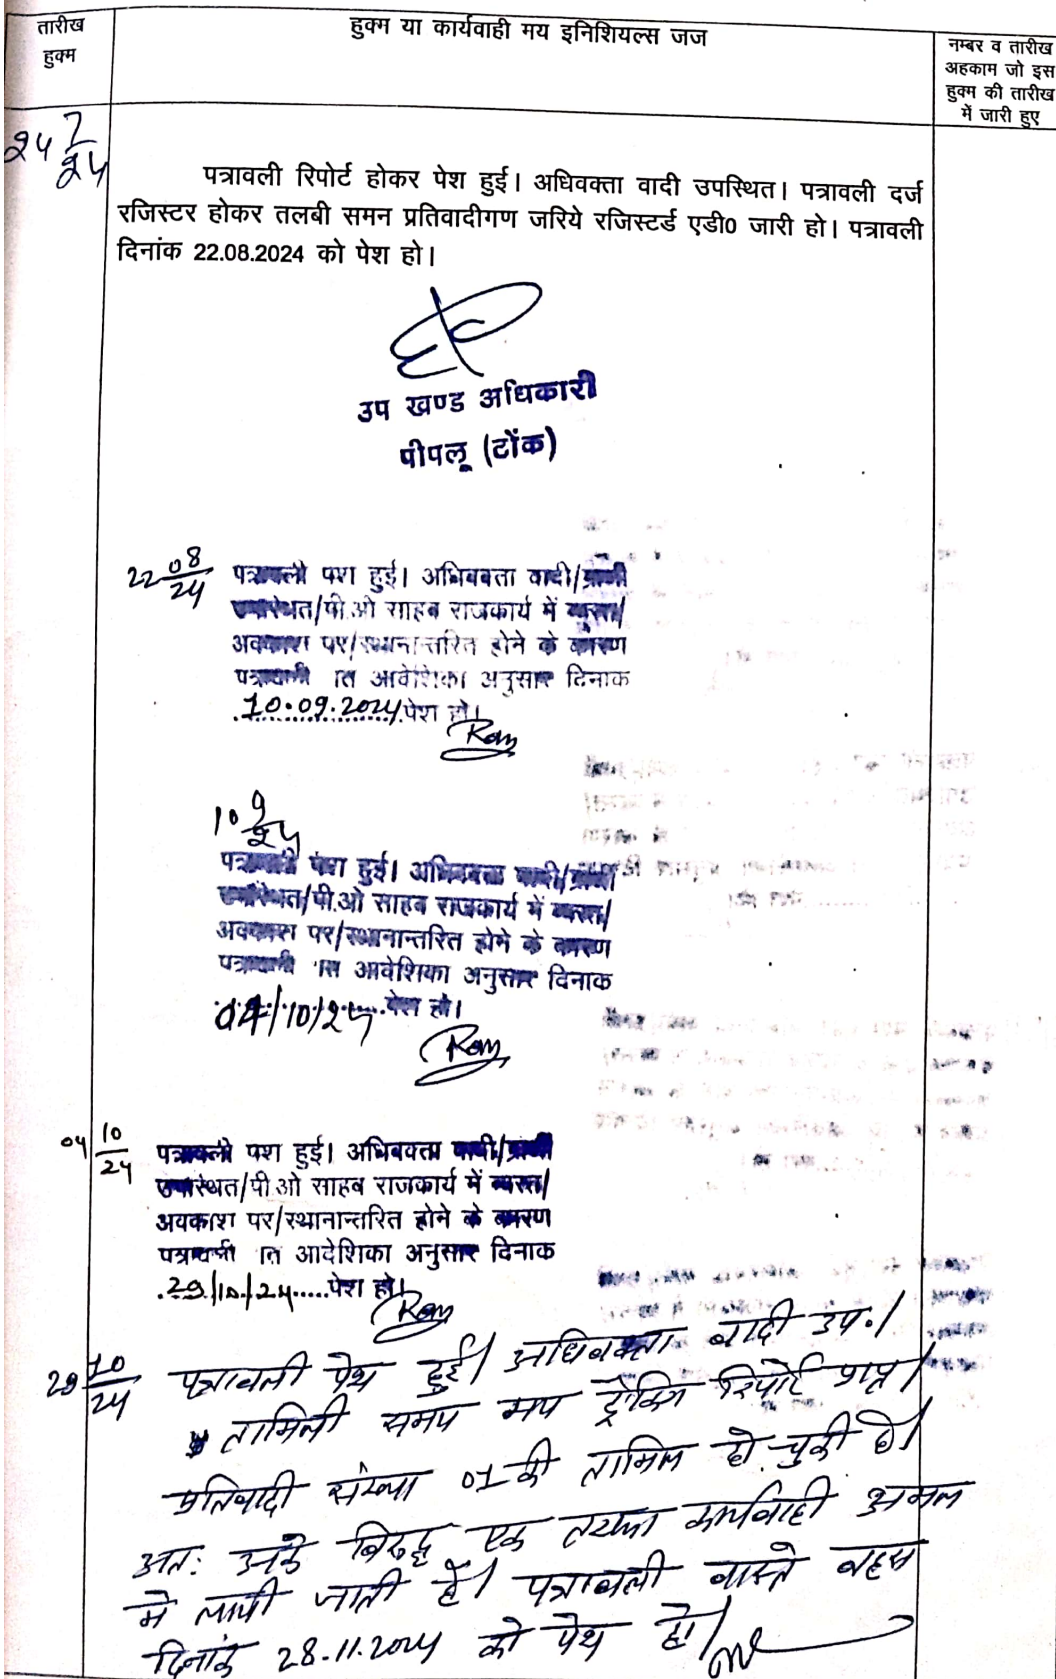 तारीख
हुक्म
हुक्म या कार्यवाही मय इनिशियल्स जज
नम्बर व तारीख
अहकाम जो इस
हुक्म की तारीख
में जारी हुए
24 7/24
पत्रावली रिपोर्ट होकर पेश हुई। अधिवक्ता वादी उपस्थित। पत्रावली दर्ज
रजिस्टर होकर तलबी समन प्रतिवादीगण जरिये रजिस्टर्ड एडी0 जारी हो। पत्रावली
दिनांक 22.08.2024 को पेश हो।
उप खण्ड अधिकारी
पीपलू (टोंक)
22 08/24
पत्रावली पेश हुई। अभिवक्ता वादी/प्रार्थी
उपस्थित/पी.ओ साहब राजकार्य में व्यस्त/
अवकाश पर/स्थानान्तरित होने के कारण
पत्रावली आदेशिका अनुसार दिनाक
10.09.2024 पेश हो।
Ram
10 9/24
पत्रावली पेश हुई। अभिवक्ता वादी/प्रार्थी
उपस्थित/पी.ओ साहब राजकार्य में व्यस्त/
अवकाश पर/स्थानान्तरित होने के कारण
पत्रावली आदेशिका अनुसार दिनाक
04/10/24 पेश हो।
Ram
04 10/24
पत्रावली पेश हुई। अभिवक्ता वादी/प्रार्थी
उपस्थित/पी.ओ साहब राजकार्य में व्यस्त/
अवकाश पर/स्थानान्तरित होने के कारण
पत्रावली आदेशिका अनुसार दिनाक
29/10/24.....पेश हो।
Ram
29 10/24
पत्रावली पेश हुई। अधिवक्ता वादी उप.।
तामिली समन मय ट्रेकिंग रिपोर्ट प्राप्त।
प्रतिवादी संख्या 01 की तामिल हो चुकी है।
अत: उनके विरुद्ध एक तरफा कार्यवाही अमल
में लायी जाती है। पत्रावली वास्ते बहस
दिनांक 28.11.2024 को पेश हो।